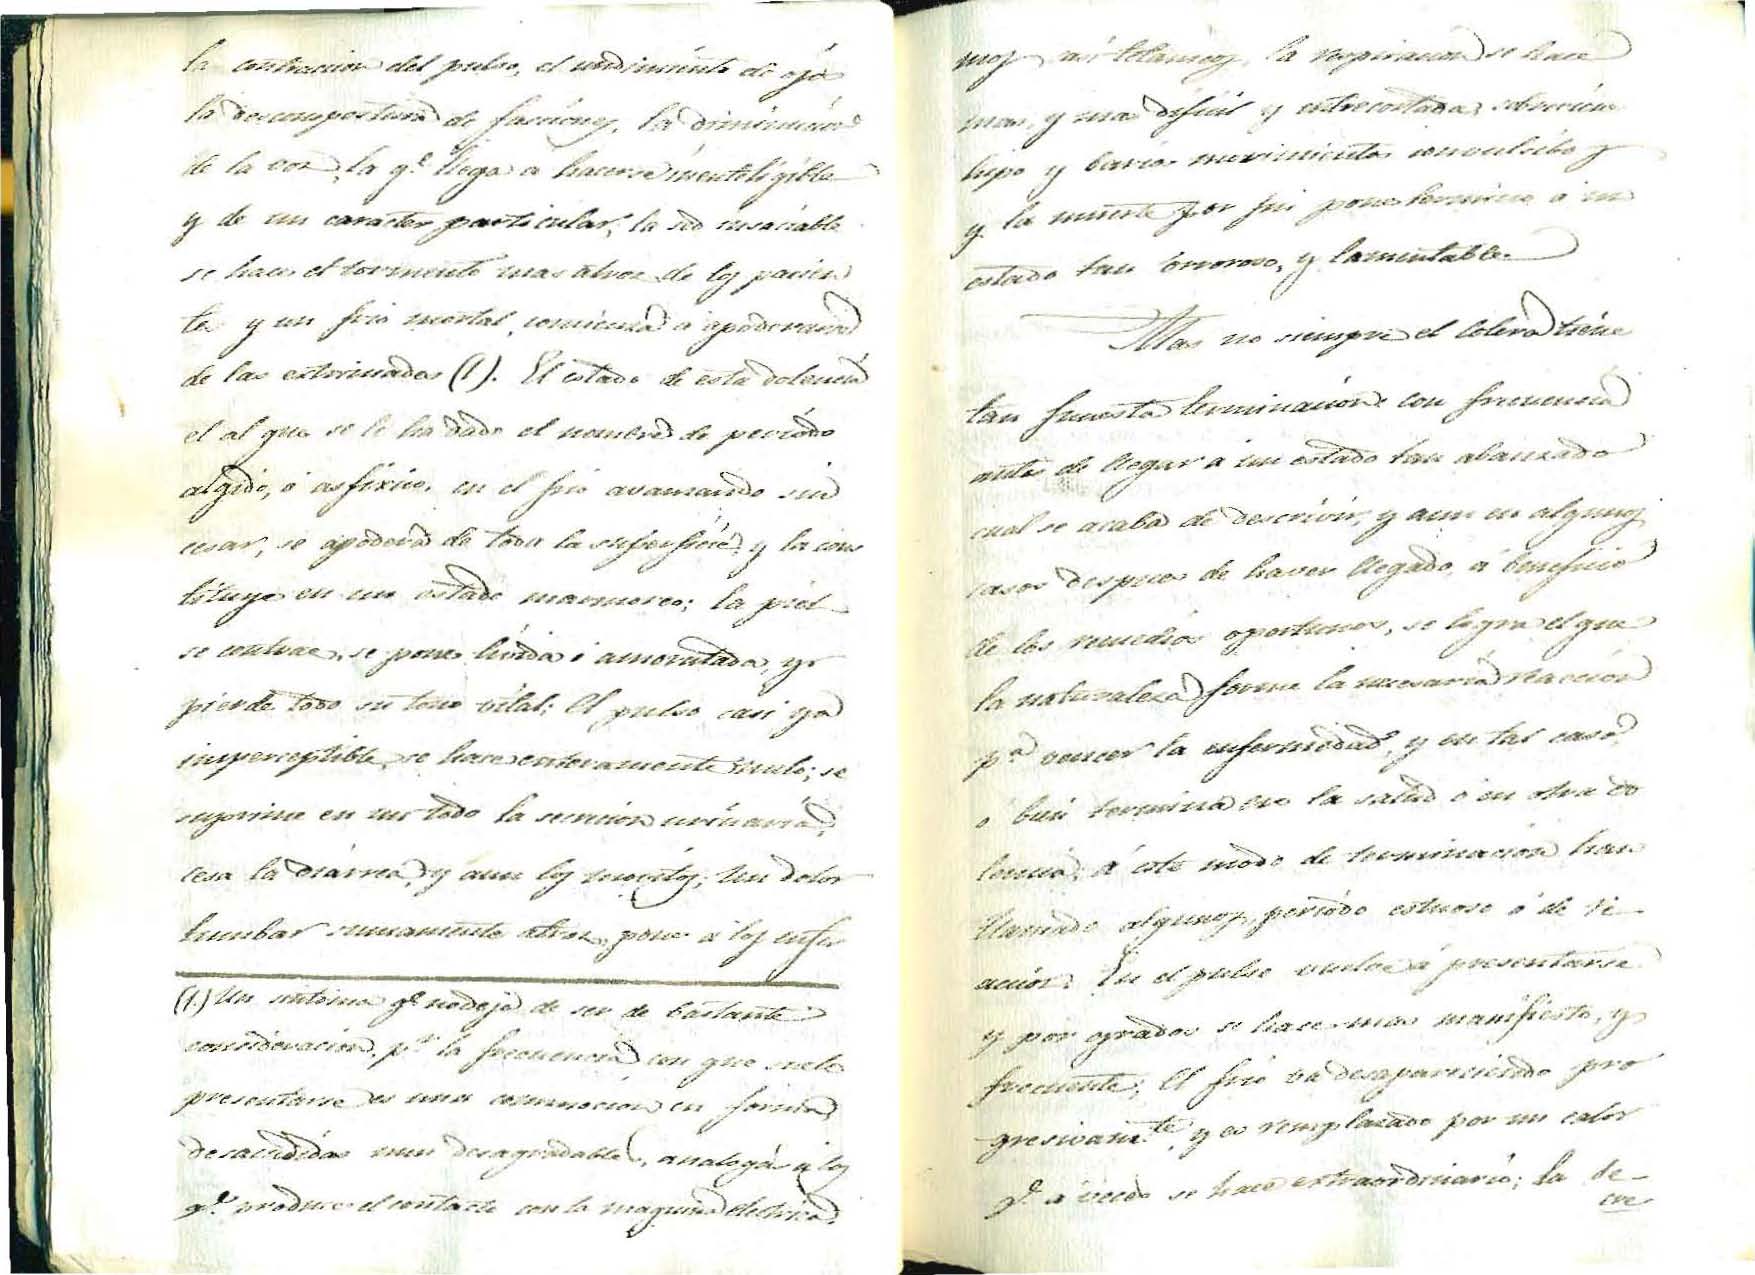 la contraccion del pulso, el undimiento de ojos
la descompostura de facciones, la diminucion
de la voz, la q.e llega a hacerse inenteligible
y de un caracter particular, la sed insaciable
se hace el tormento mas atroz de los pacien
tes y un frio mortal comienza a apoderarse
de las extrimades (1). El estado de esta dolencia
el al que se le ha dado el nombre de periodo
algido, o asfixico. en el frio avanzando sin
cesar, se apodera de toda la superficie, y la cons
tituye en un estado marmoreo; la piel
se contrae, se pone livida i amoratada, y
pierde todo su tono vital; El pulso casi ya
imperceptible, se hace enteramente nulo; se
suprime en un todo la secrecion urinaria,
cesa la diarrea, y aun los vomitos; Un dolor
lumbar sumamente atroz pone a los enfer
(1.) Un sintoma q.e no deja de ser de bastante
consideracion, p.r la frecuencia con que suele
presentarse es una conmocion en forma
de sacudidas muy desagradables, analogas a los
q.e produce el contacto con la maquina electrica.
mos asi tetanicos, la respiracion se hace
mas, y mas dificil y entrecortada, sobreviene
hipo y barios movimientos convulsibos
y la muerte por fin pone termino a un
estado tan orroroso, y lamentable.
Mas no siempre el Colera tiene
tan funesta terminacion: con frecuencia
antes de llegar a un estado tan abanzado
cual se acaba de descrivir, y aun en algunos
casos despues de haver llegado, a beneficio
de los remedios oportunos, se logra el que
la naturaleza forme la necesaria reaccion
p.a vencer la enfermedad, y en tal caso,
o bien termina en la salud o en otra do
lencia; a este modo de terminacion han
llamado algunos, periodo estuoso ó de re-
accion. En el pulso vuelve a presentarse
y por grados se hace mas manifiesto, y
frecuente; El frio va desapareciendo pro
gresivam.te, y es remplazado por un calor
q.e a veces se hace extraordinario; la de-
cre